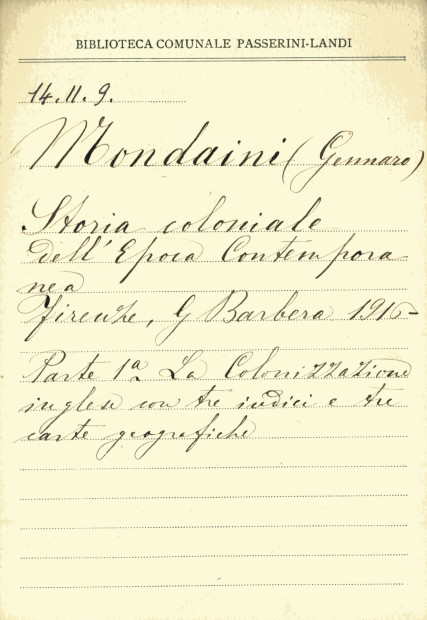 BIBLIOTECA COMUNALE PASSERINI-LANDI
14.11.9.
Mondaini (Gennaro)
Storia coloniale
dell'Epoca Contempora-
nea
Firenze, G Barbera 1916-
Parte 1a La Colonizzazione
inglese con tre indici e tre
carte geografiche